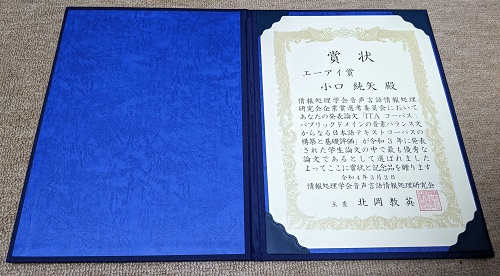 賞状
エーアイ賞
小口 純矢 殿
情報処理学会音声言語情報処理
研究会企業賞選考委員会において
あなたの発表論文「ITA コーパス:
パブリックドメインの音素バランス文
からなる日本語テキストコーパスの
構築と基礎評価」が令和3年に発表
された学生論文の中で最も優秀な
論文であるとして選ばれました
よってここに賞状と記念品を贈ります
令和4年3月2日
情報処理学会音声言語情報処理研究会
主査 北岡教英